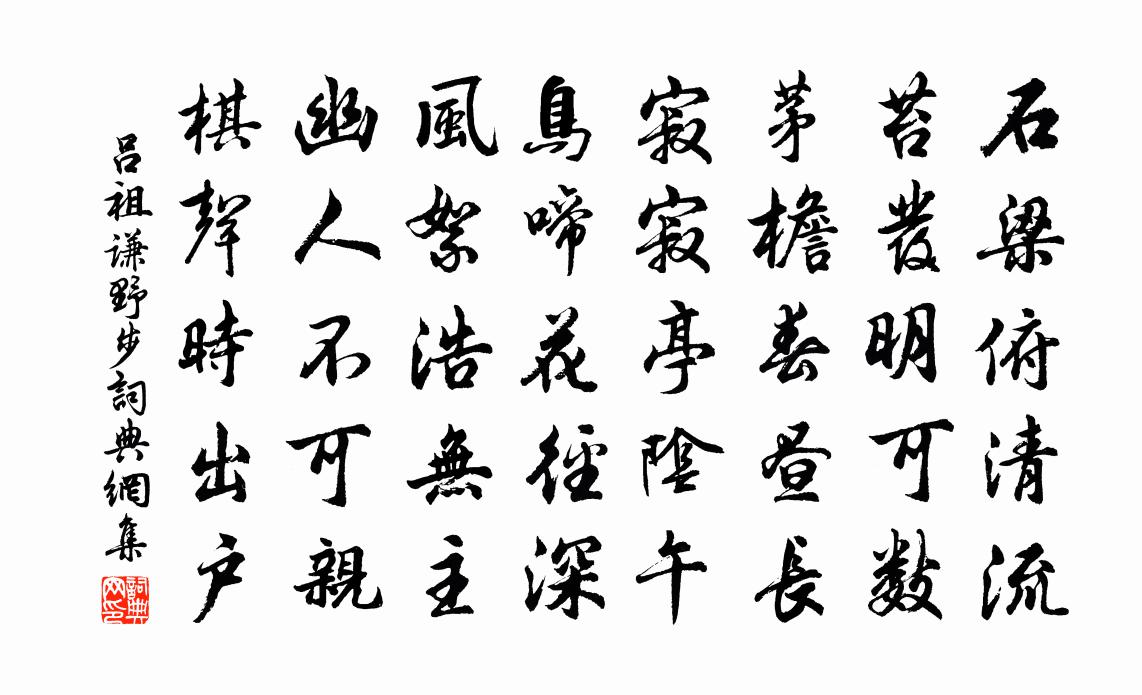 石梁俯清流
苔發明可數
茅檐春晝長
寂寂亭陰午
鳥啼花徑深
風絮浩無主
幽人不可親
棋聲時出戶
呂祖謙野步詞典網集
詞典網印